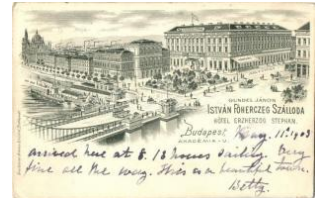 GUNDEL JÁNOS
ISTVÁN FŐHERCZEG SZÁLLODA
HÔTEL ERZHERZOG STEPHAN.
Budapest,
AKADÉMIA-U.
May 11 1903
arrived here at 8. 13 hours sailing. Very
fine all the way. This is a beautiful town.
Betty.